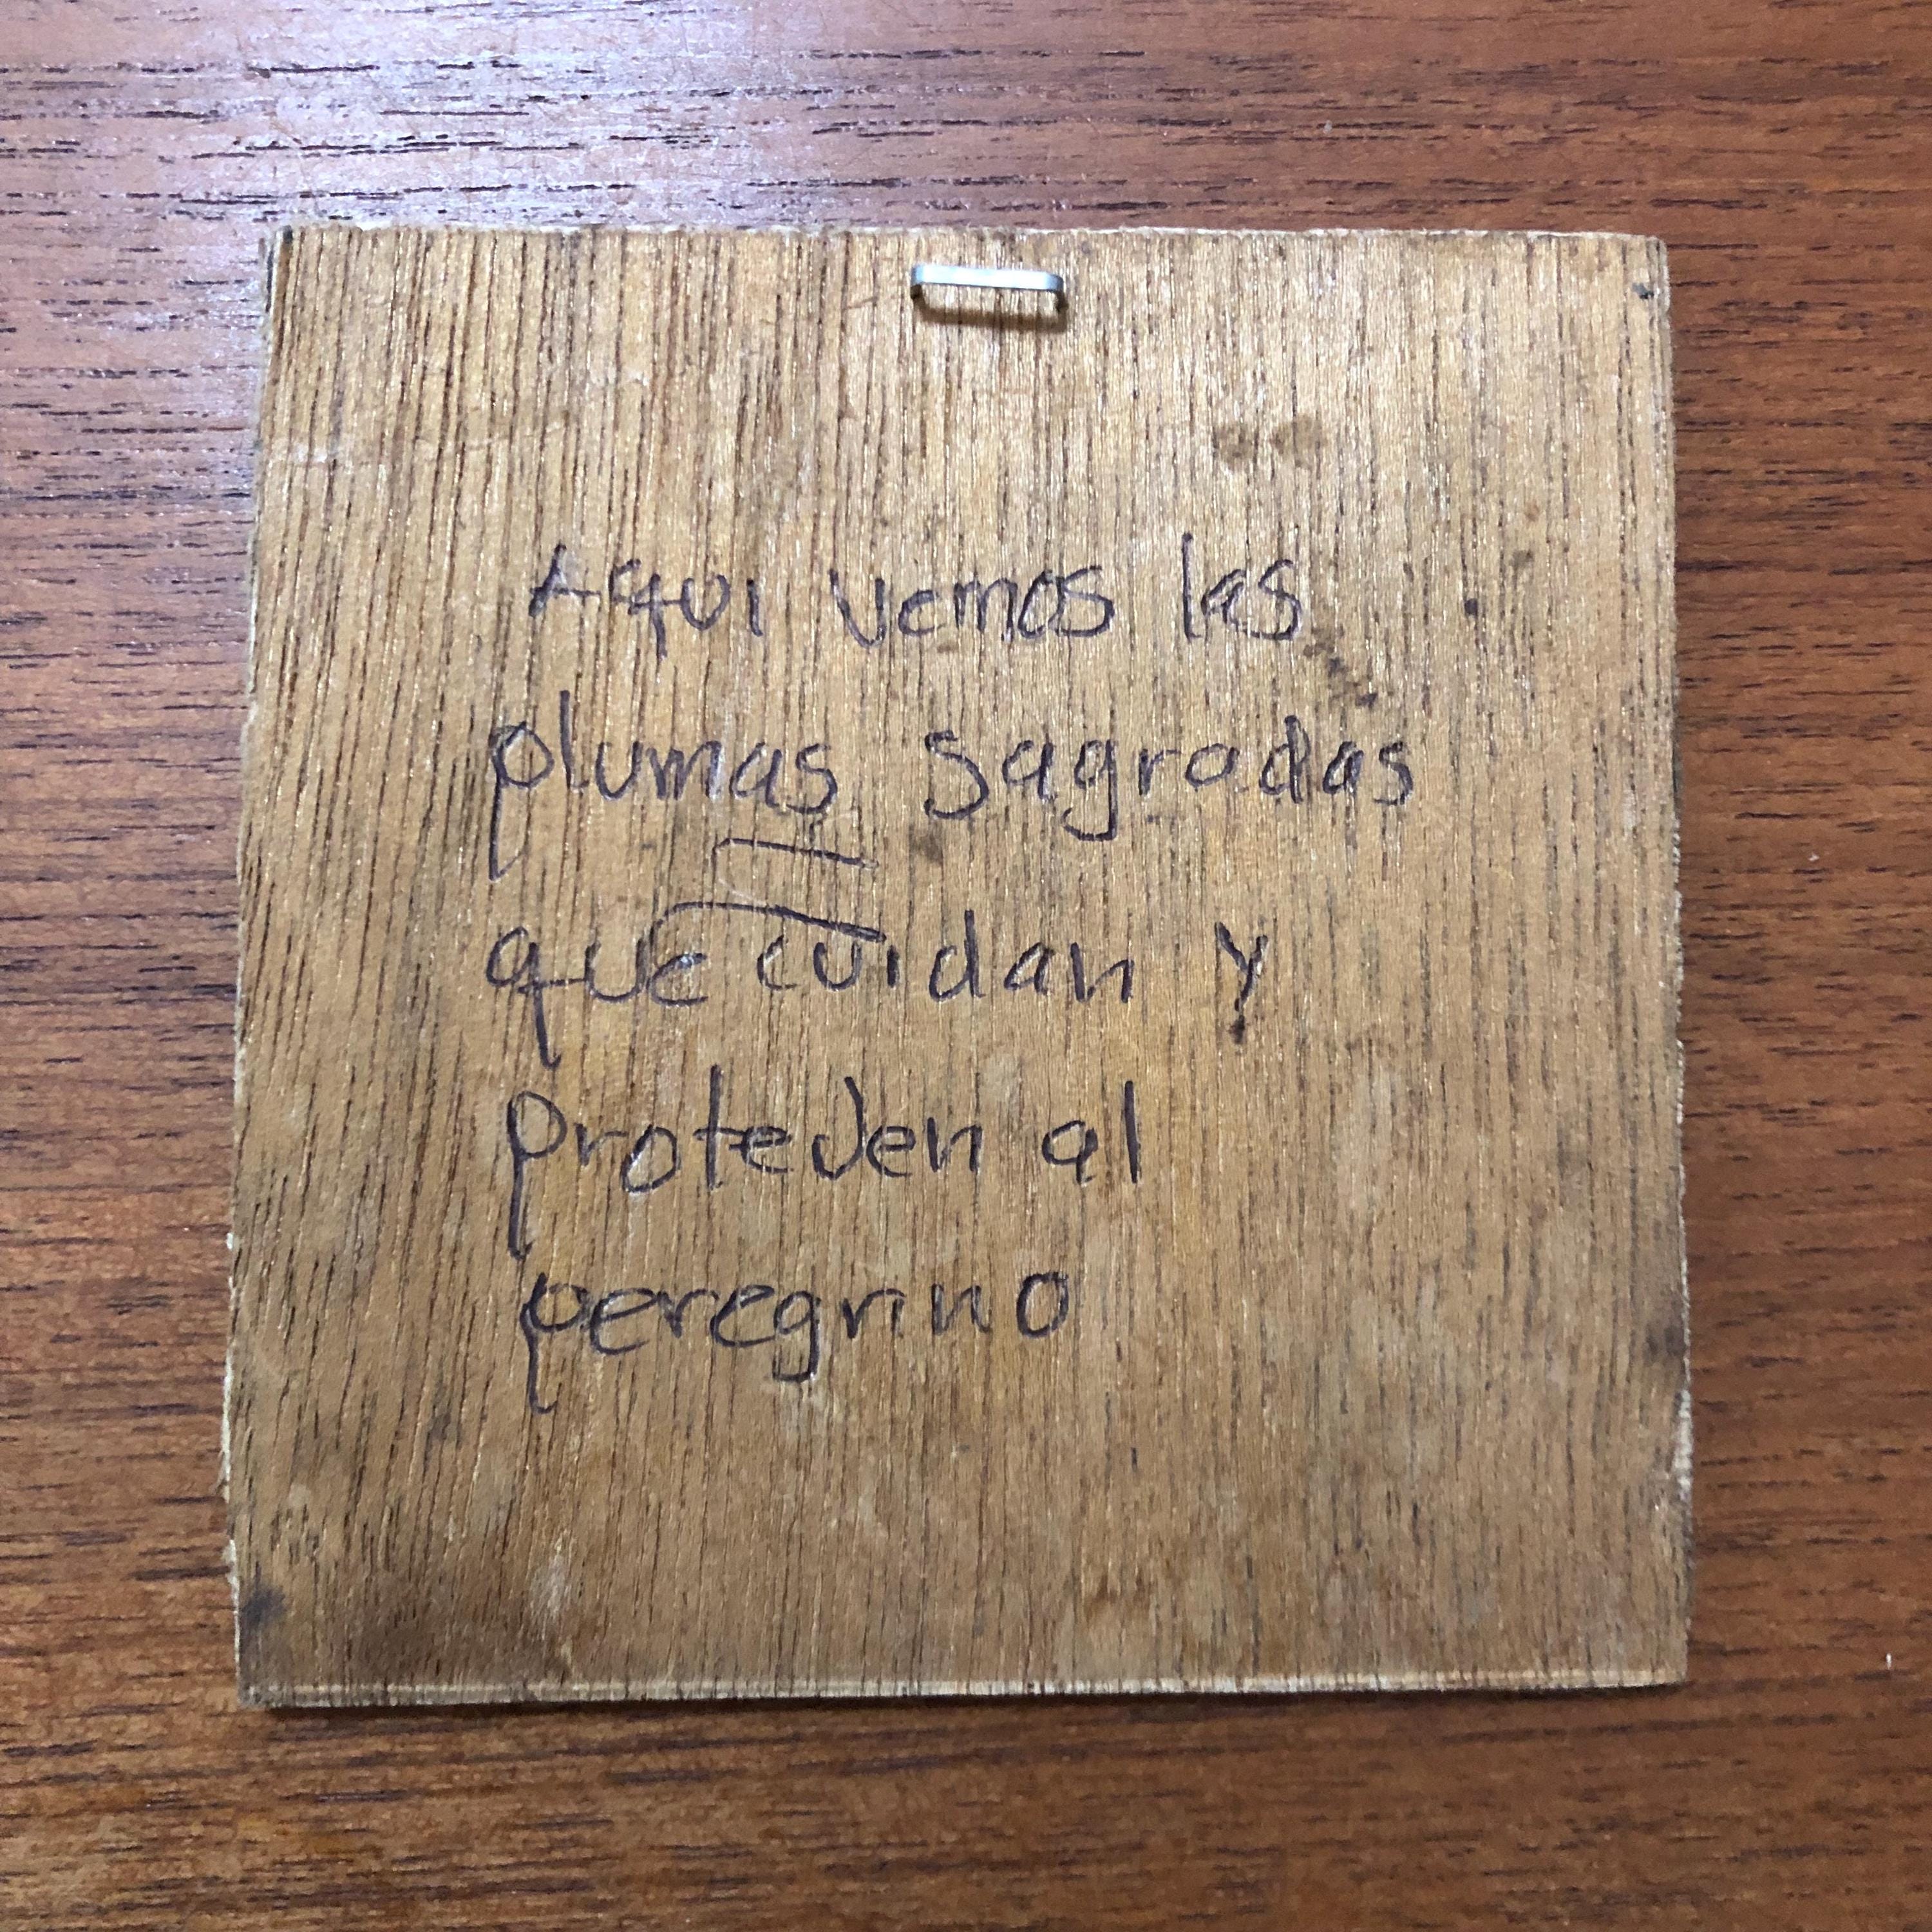 Aqui vemos las
plumas sagradas
que cuidan y
proteJen al
peregrino